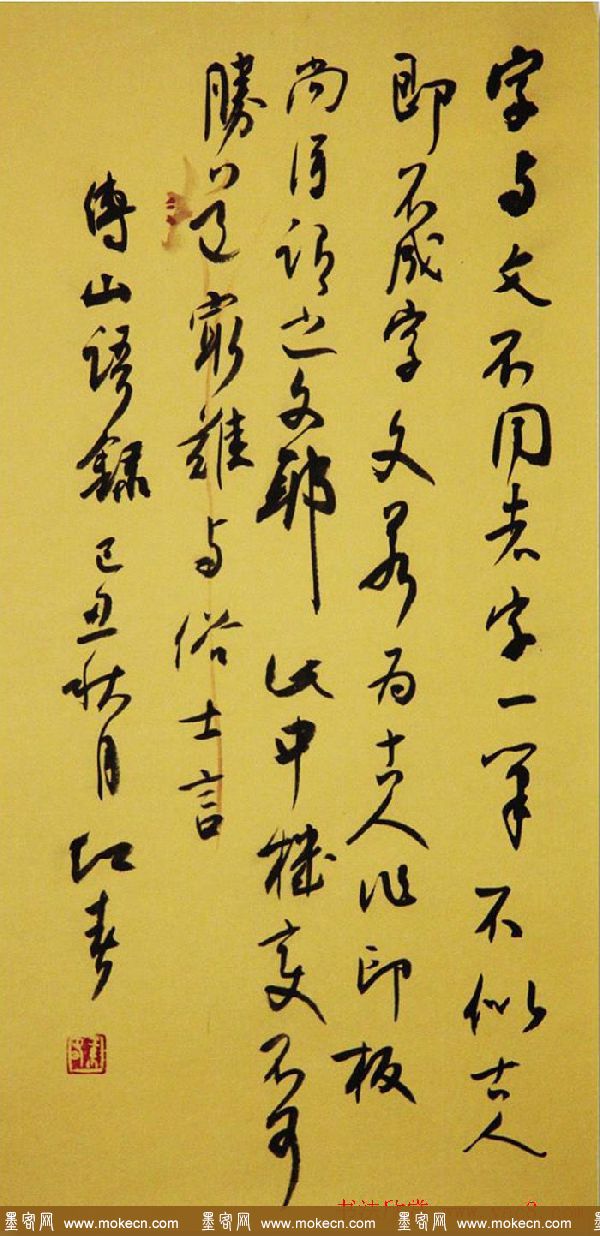 字与文不同者字一笔不似古人
即不成字文若为古人作印板
尚得谓之文耶此中机变不可
勝道最難与俗士言
傅山語録己丑秋月红春
墨客网 www.mokecn.com 墨客网 www.mokecn.com 墨客网 www.mokecn.com